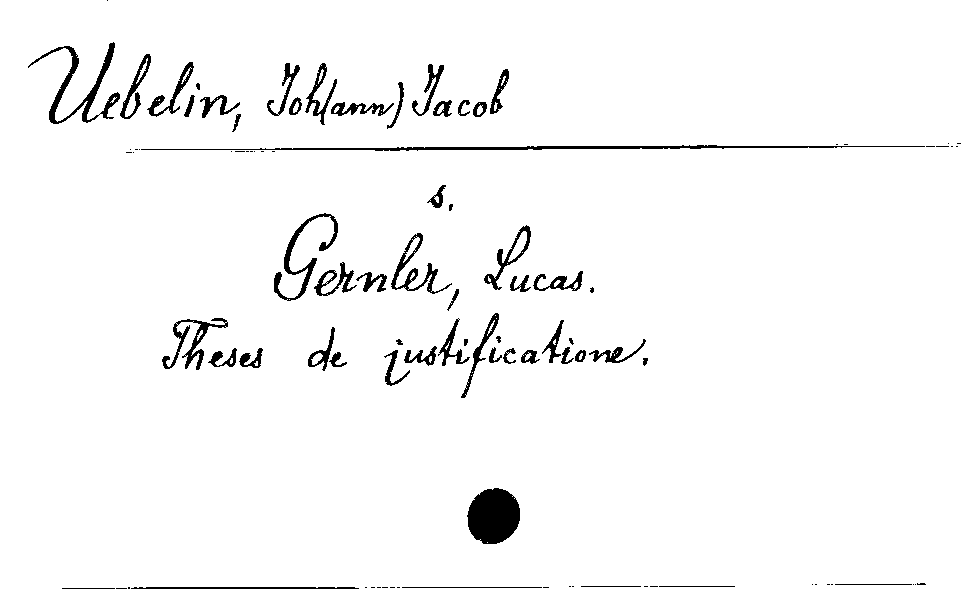 Uebelin, Joh(ann) Jacob
s.
Gernler, Lucas.
Theses de justificatione.